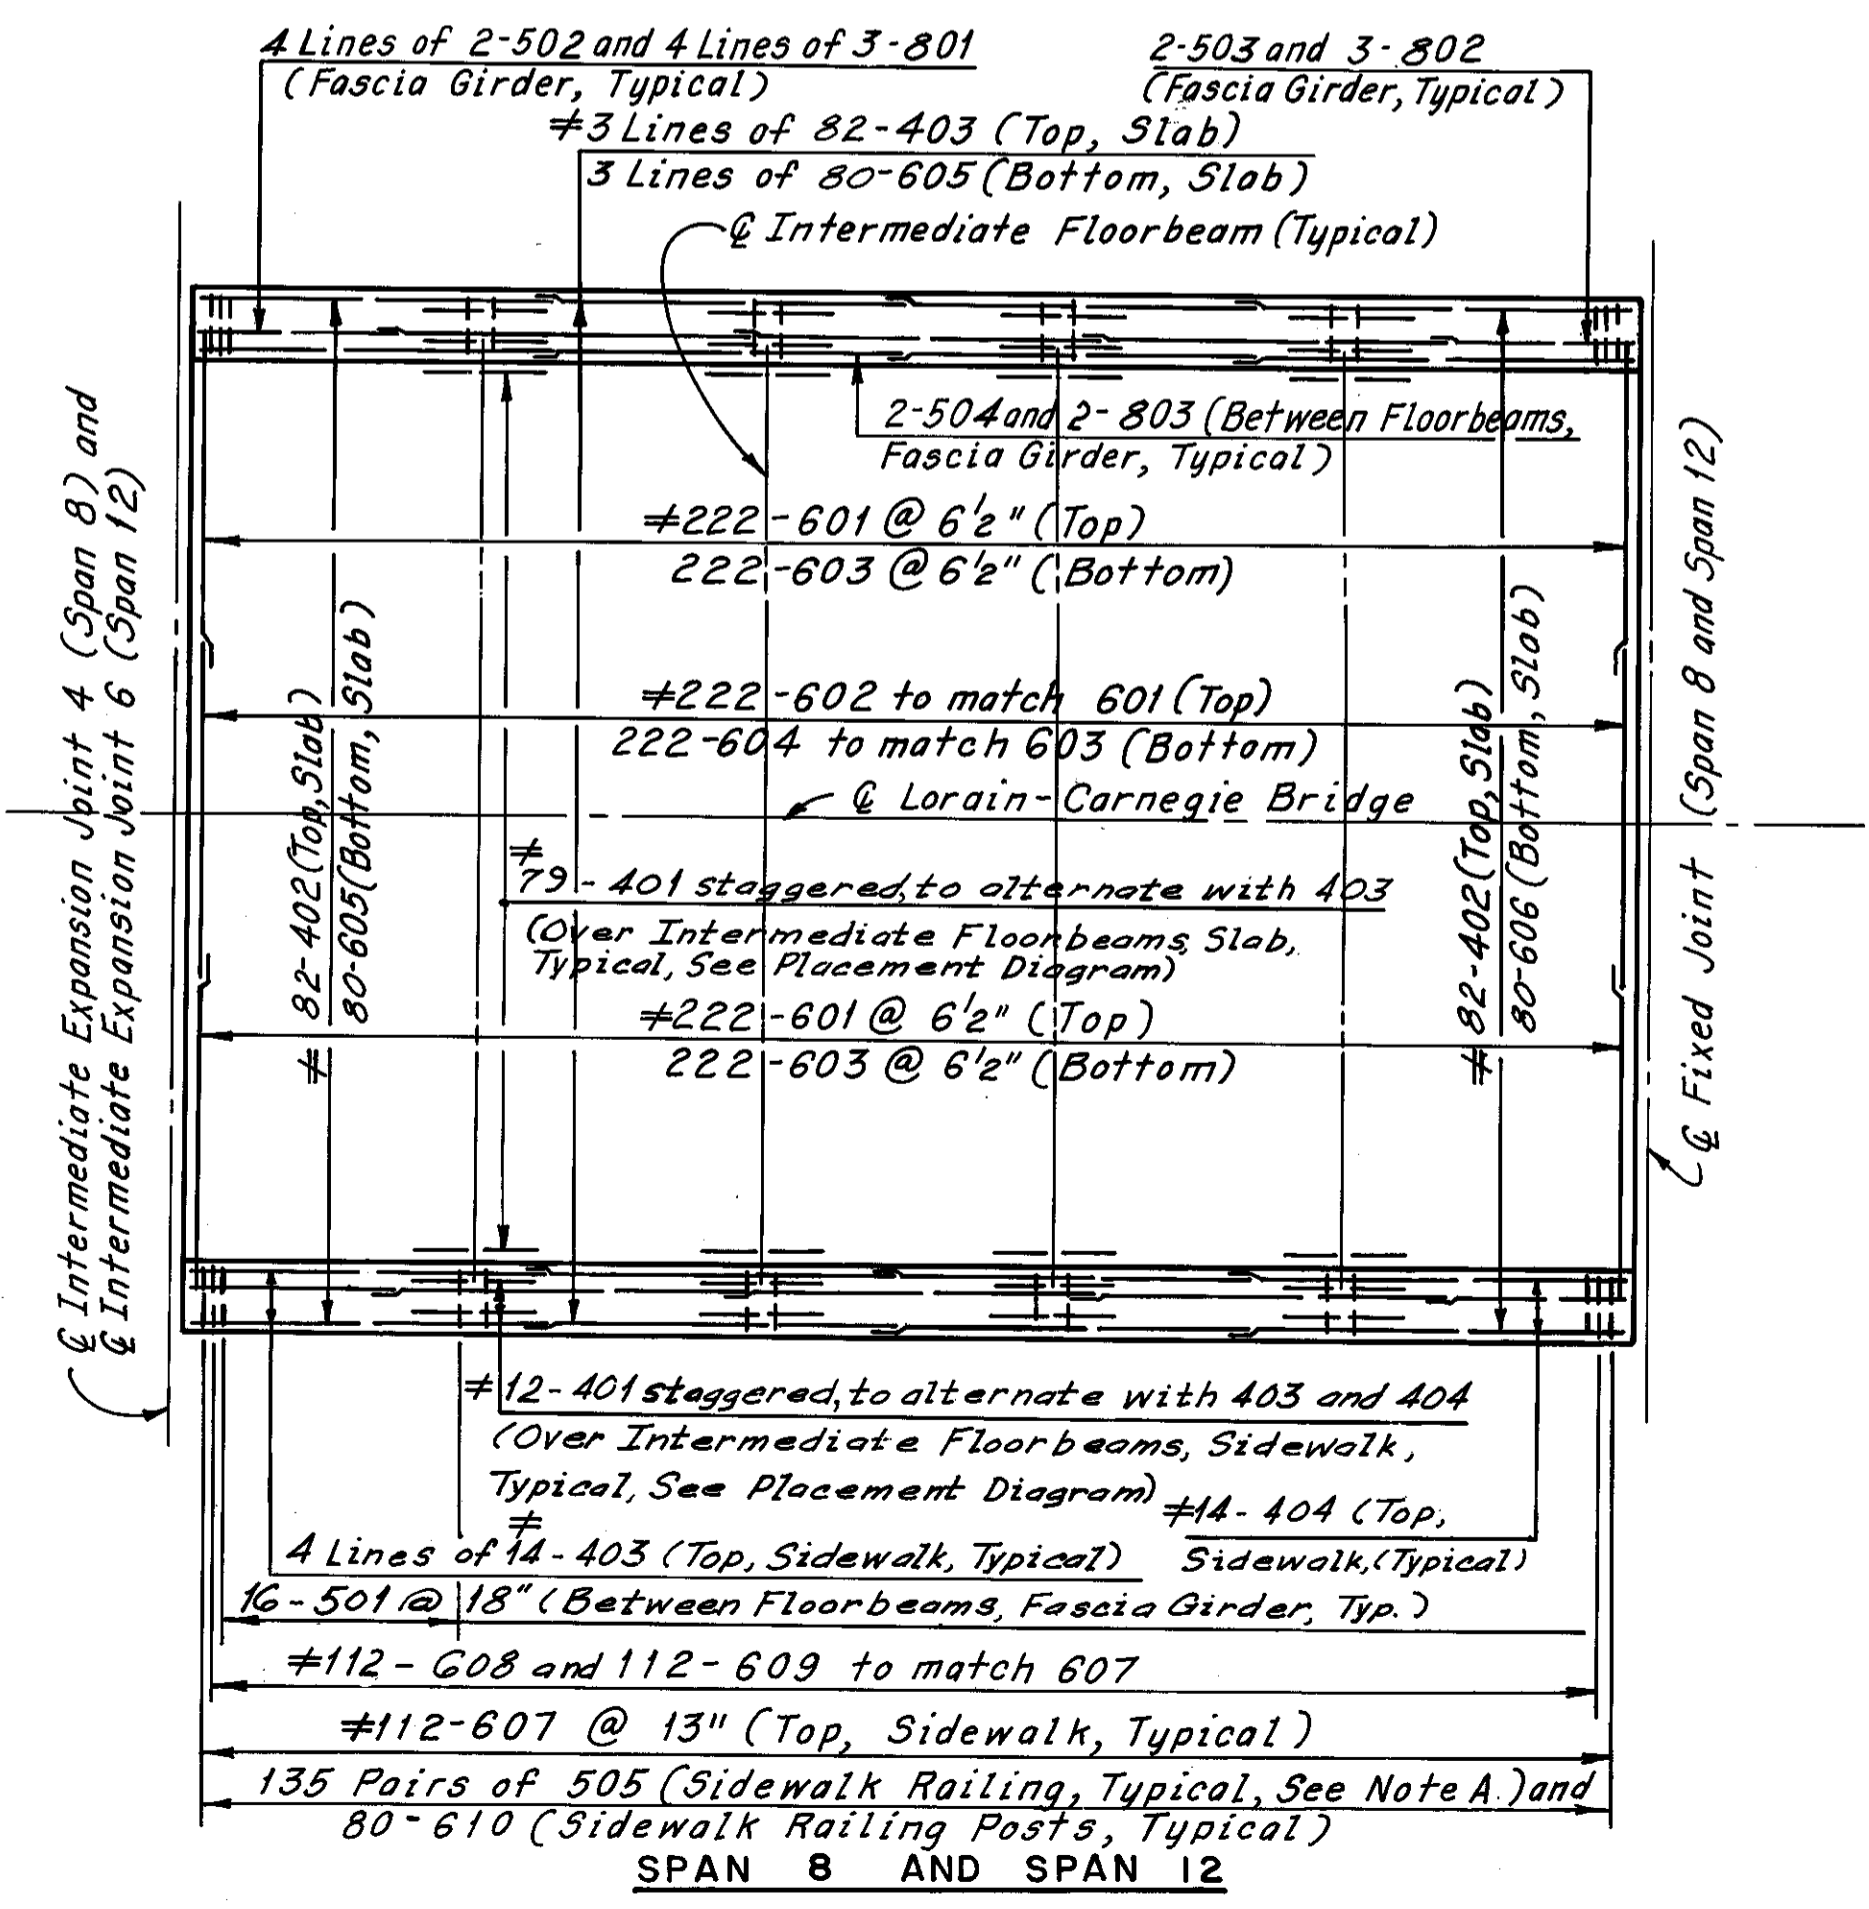 4 Lines of 2-502 and 4 Lines of 3-801
(Fascia Girder, Typical)
2-503 and 3-802
(Fascia Girder, Typical)
≠3 Lines of 82-403 (Top, Slab)
3 Lines of 80-605 (Bottom, Slab)
℄ Intermediate Floorbeam (Typical)
2-504 and 2-803 (Between Floorbeams,
Fascia Girder, Typical)
≠222-601 @ 6½" (Top)
222-603 @ 6½" (Bottom)
≠222-602 to match 601 (Top)
222-604 to match 603 (Bottom)
℄ Lorain-Carnegie Bridge
≠
79-401 staggered, to alternate with 403
(Over Intermediate Floorbeams, Slab,
Typical, See Placement Diagram)
≠222-601 @ 6½" (Top)
222-603 @ 6½" (Bottom)
℄ Intermediate Expansion Joint 4 (Span 8) and
℄ Intermediate Expansion Joint 6 (Span 12)
≠ 82-402 (Top, Slab)
80-605 (Bottom, Slab)
≠ 82-402 (Top, Slab)
80-606 (Bottom, Slab)
℄ Fixed Joint (Span 8 and Span 12)
≠12-401 staggered, to alternate with 403 and 404
(Over Intermediate Floorbeams, Sidewalk,
Typical, See Placement Diagram)
≠14-404 (Top,
Sidewalk, (Typical)
≠
4 Lines of 14-403 (Top, Sidewalk, Typical)
16-501 @ 18" (Between Floorbeams, Fascia Girder, Typ.)
≠112-608 and 112-609 to match 607
≠112-607 @ 13" (Top, Sidewalk, Typical)
135 Pairs of 505 (Sidewalk Railing, Typical, See Note A.) and
80-610 (Sidewalk Railing Posts, Typical)
SPAN 8 AND SPAN 12